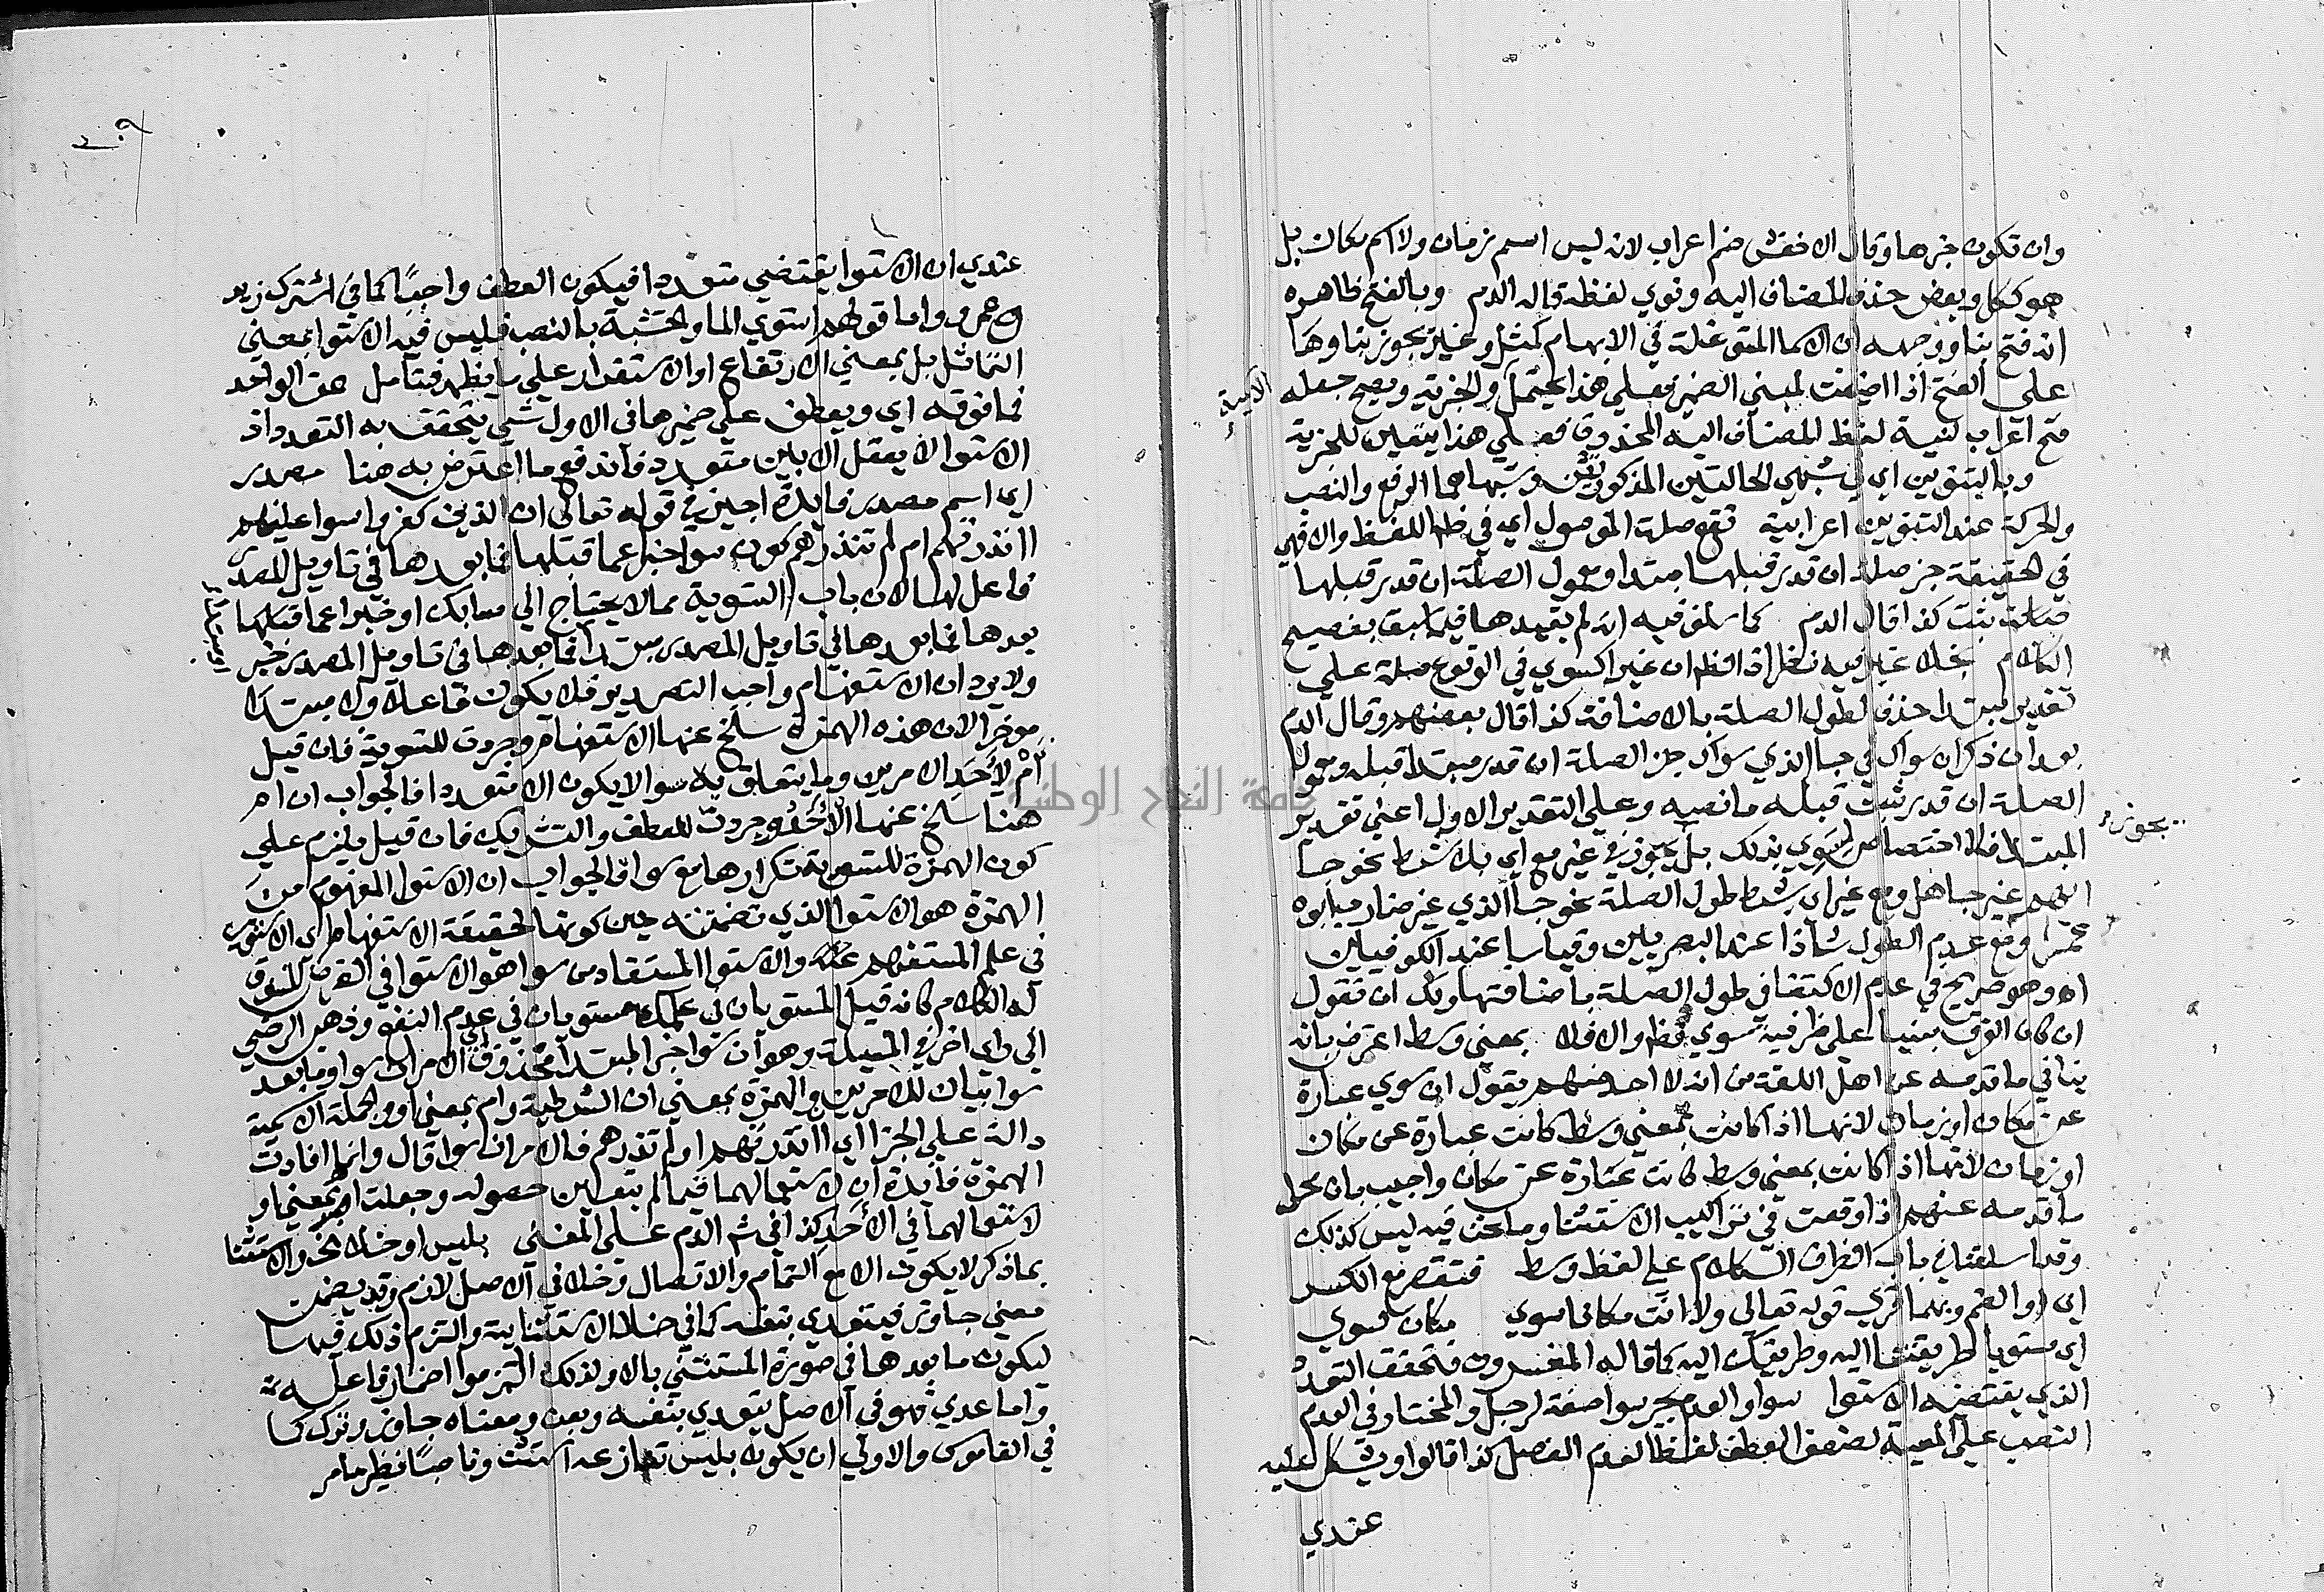 وان تكون خبرها وقال الاخفش ضم اعراب لانه ليس اسم زمان ولا اسم مكان بل
هو ككل وبعض حذف المضاف اليه ونوي لفظه قاله الدم وبالفتح ظاهره
انه فتح بنا ووجهه ان الاسما المتوغلة في الابهام كمثل وغير يجوز بناوها
على الفتح اذا اضيفت لمبني الضير فعلي هذا يحتمل والخبرية ويصح جعله
الاسمية
فتح اعراب لنية لفظ المضاف اليه المحذوف فعلي هذا يتعين للخبرية
وبالتنوين اي في شبهي الحالتين المذكورتين وشبهاهما الرفع والنصب
والحركة عند التنوين اعرابية تقع صلة الموصول اي في ظاهر اللفظ والا فهي
في الحقيقة جز صلة ان قدر قبلها مبتدا ومعمول الصلة ان قدر قبلها
ثبت كذا قال الدم كما سلف فيه انه لم يقيدها فيما سبق بفصيح
الكلام بخلاف غير فيه نظر اذ افظ ان غير اكسوي في الوقوع صلة علي
تقدير مبتدا حذف لطول الصلة بالاضافة كذا قال بعضهم وقال الدم
بعد ان ذكر ان سواك في جا الذي سواك جز الصلة ان قدر مبتدا قبله ومعمول
الصلة ان قدر ثبت قبله ما نصه وعلي التقدير الاول اعني تقدير
المبتدا فلا اختصاص لسوي بذلك بل يجوز في غير مع اي بلا شرط نحو جا
يجوز
ايهم غير جاهل ومع غير اي بشرط طول الصلة نحو جا الذي غير ضارب ابوه
عمرا ومع عدم الطول شاذا عند البصريين وقياسا عند الكوفيين
اه وهو صريح في عدم الاكتفا في طول الصلة باضافتها ولك ان تقول
ان كان الفرق مبنيا على ظرفية سوي فظ والا فلا بمعني وسط اعترض بانه
ينافي ما قدمه عن اهل اللغة من انه لا احد منهم يقول ان سوي عبارة
عن مكان او زمان لانها اذا كانت بمعني وسط كانت عبارة عن مكان
او زمان لانها اذا كانت بمعني وسط كانت عبارة عن مكان واجيب بان محل
ما قدمه عنهم اذا وقعت في تراكيب الاستثنا وما نحن فيه ليس كذلك
وقد اسلفنا في باب الظرف الكلام علي لفظ وسط فتقصر مع الكسر
اي او الضم وبهما قري قوله تعالى ولا انت مكانا سوي مكان سوي
اي مستويا طريقتنا اليه وطريقك اليه كما قاله المفسرون فتحقق التعدد
الذي يقتضيه الاستوا سوا والعدم بجر سوا صفة لرجل والمختار في العدم
النصب علي المعية لضعف العطف لفظا لعدم الفصل كذا قالوا ويشكل عليه
عندي
عندي ان الاستوا يقتضي متعددا فيكون العطف واجبا كما في اشترك زيد
وعمرو واما قولهم استوي الما والخشبة بالنصب فليس فيه الاستوا بمعني
التماثل بل بمعني الارتفاع او الاستقرار علي ما يظهر فتامل عن الواحد
فما فوقه اي ويعطف علي ضميرها في الاول شي يتحقق به التعدد اذ
الاستوا لا يعقل الا بين متعدد فاندفع ما اعترض به هنا مصدر
اي اسم مصدر فايدة اجيز في قوله تعالى ان الذين كفروا سوا عليهم
اانذرتهم ام لم تنذرهم كون سوا خبرا عما قبلها فما بعدها في تاويل المصدر
فاعل لها لان باب التسوية مما لا يحتاج الى سابك او خبرا عما قبلها
بعدها فما بعدها في تاويل المصدر مبتدا فما بعدها في تاويل المصدر خبر
ولا يرد ان الاستفهام واجب التصدير فلا يكون فاعلا ولا مبتدا
موخرا لان هذه الهمزة سلخ عنها الاستفهام وجردت للتسوية فان قيل
ام لاحد الامرين وما يتعلق به سوا لا يكون الا متعددا فالجواب ان ام
هنا سلخ عنها الاحد وجردت للعطف والتشريك فان قيل يلزم علي
كون الهمزة للتسوية تكرارها مع سوا فالجواب ان الاستوا المفهوم من
الهمزة هو الاستوا الذي تضمنته حين كونها لحقيقة الاستفهام اي الاستوا
في علم المستفهم عنه والاستوا المستفاد من سوا هو الاستوا في الغرض المسوق
له الكلام كانه قيل المستويان في علمك مستويان في عدم النفع وذهب الرضي
الى راي اخر في المسيلة وهو ان سوا خبر المبتدا محذوف اي الامران سوا وما بعد
سوا بيان للامرين والهمزة بمعني ان الشرطية وام بمعني او والجملة الاسمية
دالة علي الجزا اي اانذرتهم او لم تنذرهم فالامران سوا قال وانما افادت
الهمزة فايدة ان لاستعمالهما فيما لم يتعين حصوله وجعلت ام بمعني او
لاستعمالهما في الاحد كذا في شم الدم علي المغني بليس او خلا نحو والاستثنا
بما ذكر لا يكون الا مع التمام والاتصال وخلا في الاصل لازم وقد يضمن
معني جاوز فيتعدي بنفسه كما في خلا الاستثنايه والتزم ذلك فيها
ليكون ما بعدها في صورة المستثني بالا ولذلك التزموا اضمار فاعله
واما عدي فهو في الاصل يتعدي بنفسه وبعن ومعناه جاوز وترك كما
في القاموس والاولي ان يكون بليس تنازعه استثن وناصبا نظير ما مر
جامعة النجاح الوطنية